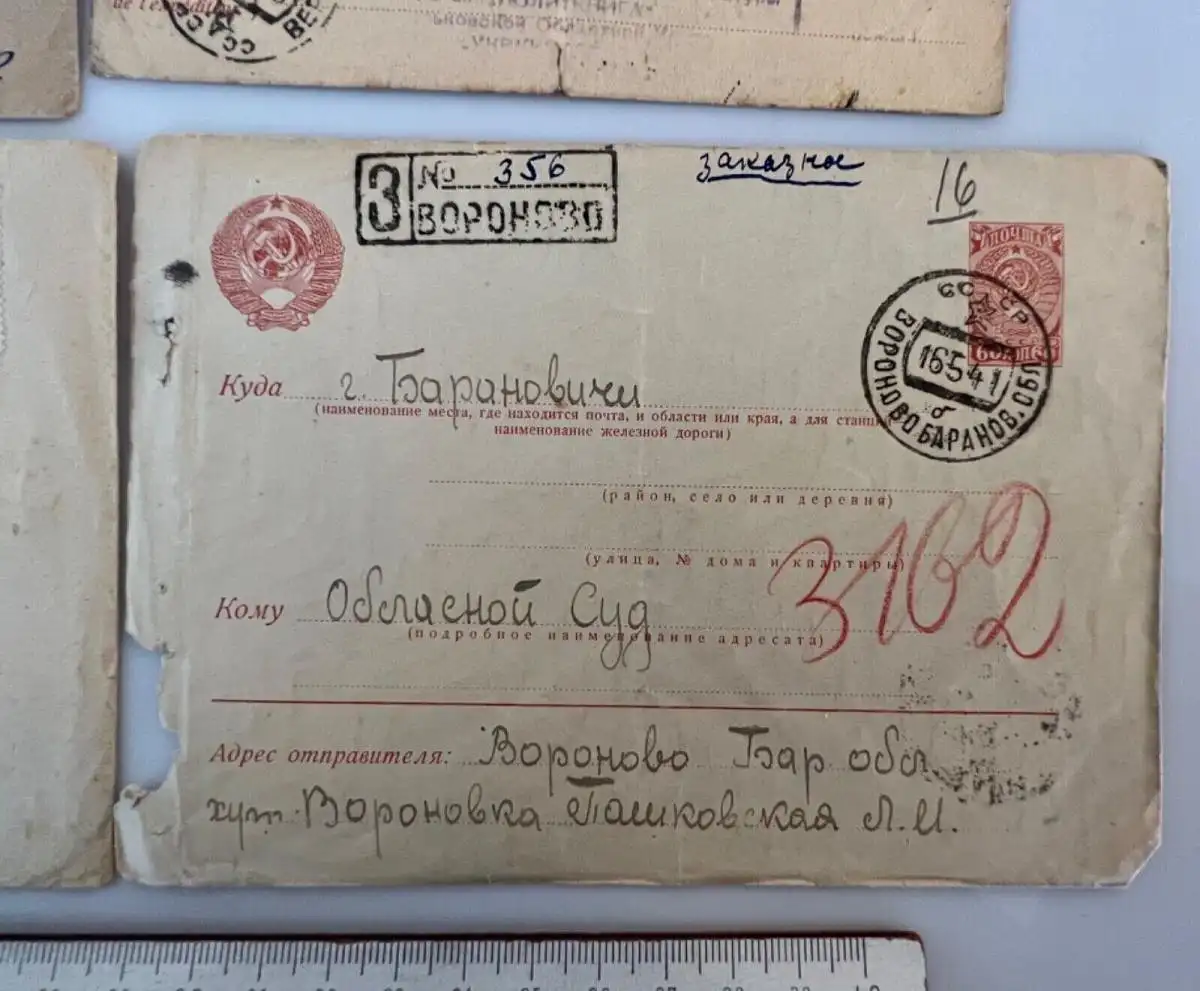 de l'expéditeur
заказное
16
З № 356
ВОРОНОВО
ПОЧТА
СССР
ВОРОНОВО БАРАНОВ. ОБЛ
16 5 41
б
60 КОП 60
Куда г. Барановичи
(наименование места, где находится почта, и области или края, а для станции
наименование железной дороги)
(район, село или деревня)
(улица, № дома и квартиры)
3162
Кому Обласной Суд
(подробное наименование адресата)
Адрес отправителя: Вороново Бар обл
хут. Вороновка Пашковская Л. И.